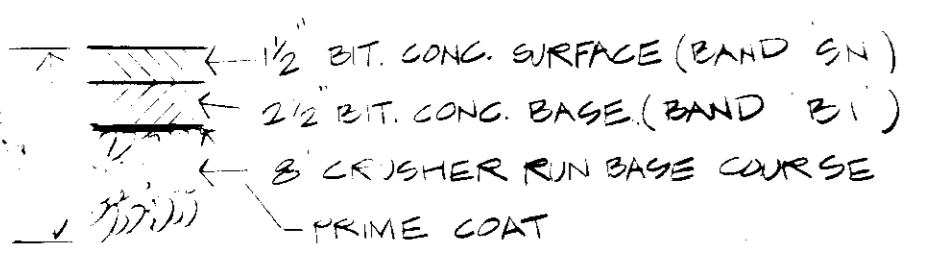 1½" BIT. CONC. SURFACE (BAND SN)
2½" BIT. CONC. BASE (BAND B1)
8" CRUSHER RUN BASE COURSE
PRIME COAT